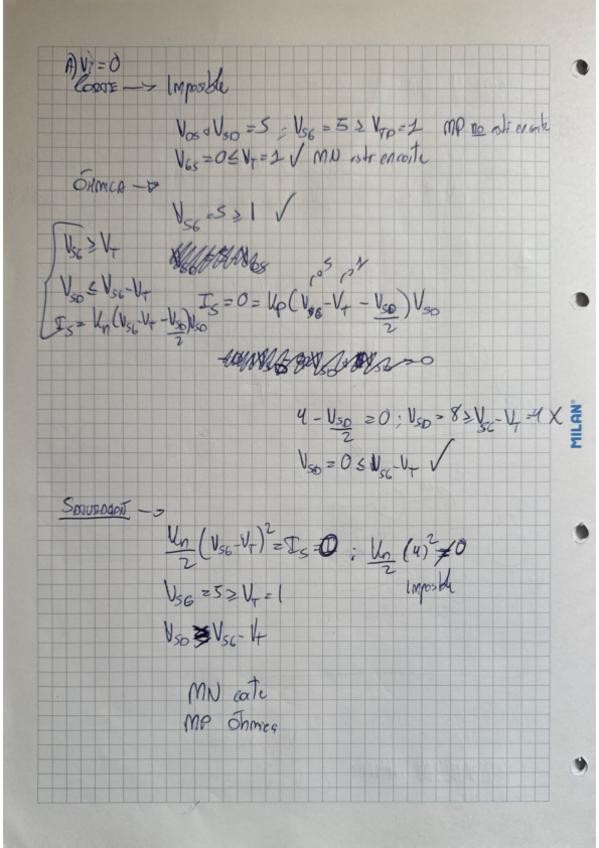 A) Vi = 0
CORTE → Imposible
V_DS o V_SD = 5 ; V_SG = 5 ≥ V_TP = 1 MP no está en corte
V_GS = 0 ≤ V_T = 1 ✓ MN está en corte
ÓHMICA →
V_SG = 5 ≥ 1 ✓
V_SG ≥ V_T
V_SD ≤ V_SG - V_T
I_S = K_n (V_SG - V_T - V_SD/2) V_SD
5 1
I_S = 0 = K_p (V_SG - V_T - V_SD/2) V_SD
= 0
4 - V_SD/2 = 0 ; V_SD = 8 ≥ V_SG - V_T = 4 X
V_SD = 0 ≤ V_SG - V_T ✓
MILAN
SATURACIÓN →
K_n/2 (V_SG - V_T)² = I_S = 0 ; K_n/2 (4)² ≠ 0
Imposible
V_SG = 5 ≥ V_T = 1
V_SD ≥ V_SG - V_T
MN corte
MP Óhmica